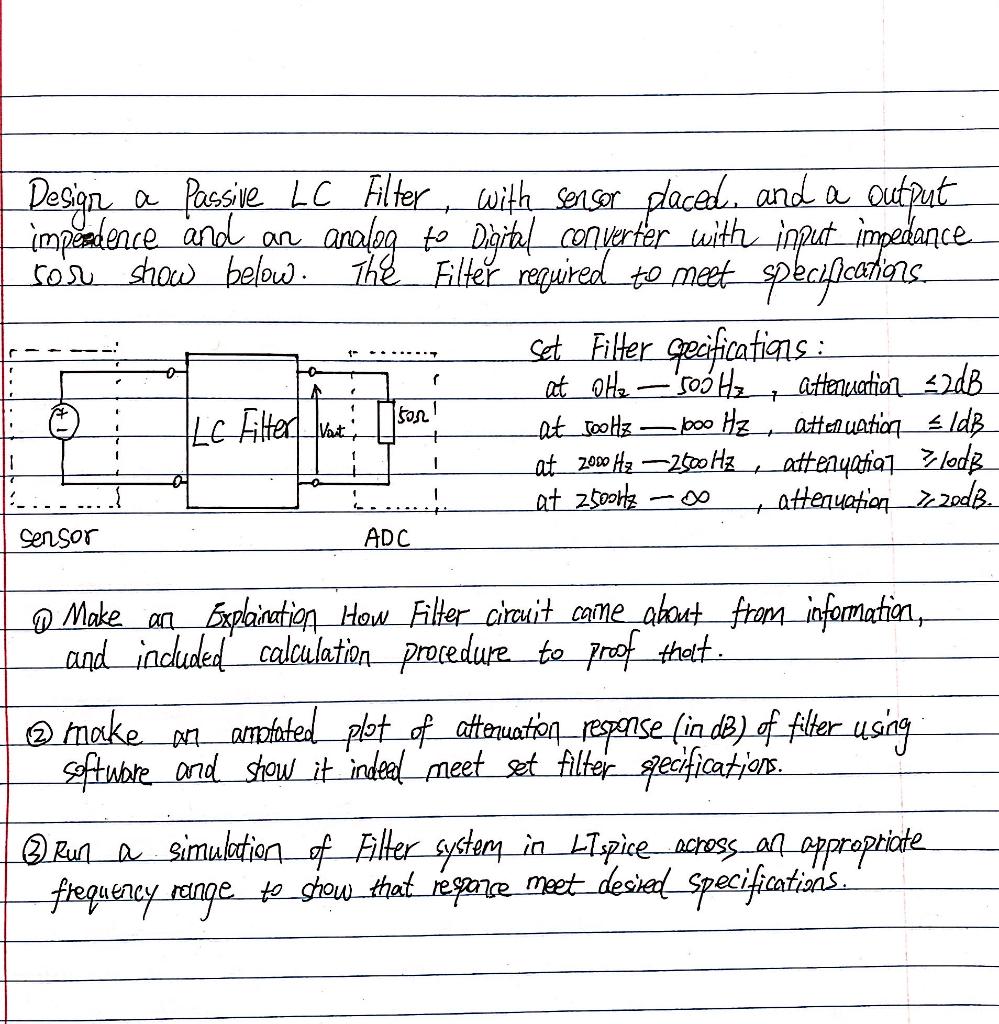 Design a Passive LC Filter, with sensor placed. and a output
impedence and an analog to Digital converter with input impedance
50Ω show below. The Filter required to meet specifications.
Set Filter specifications:
at 0Hz — 500Hz, attenuation ≤2dB
at 500Hz — 1000 Hz, attenuation ≤ 1dB
at 2000 Hz — 2500 Hz, attenuation ≥10dB
at 2500Hz — ∞, attenuation ≥20dB.
+
-
LC Filter
Vout
50Ω
sensor
ADC
① Make an Explaination How Filter circuit came about from information,
and included calculation procedure to proof that.
② make an annotated plot of attenuation response (in dB) of filter using
software and show it indeed meet set filter specifications.
③ Run a simulation of Filter system in LTspice across an appropriate
frequency range to show that responce meet desired specifications.